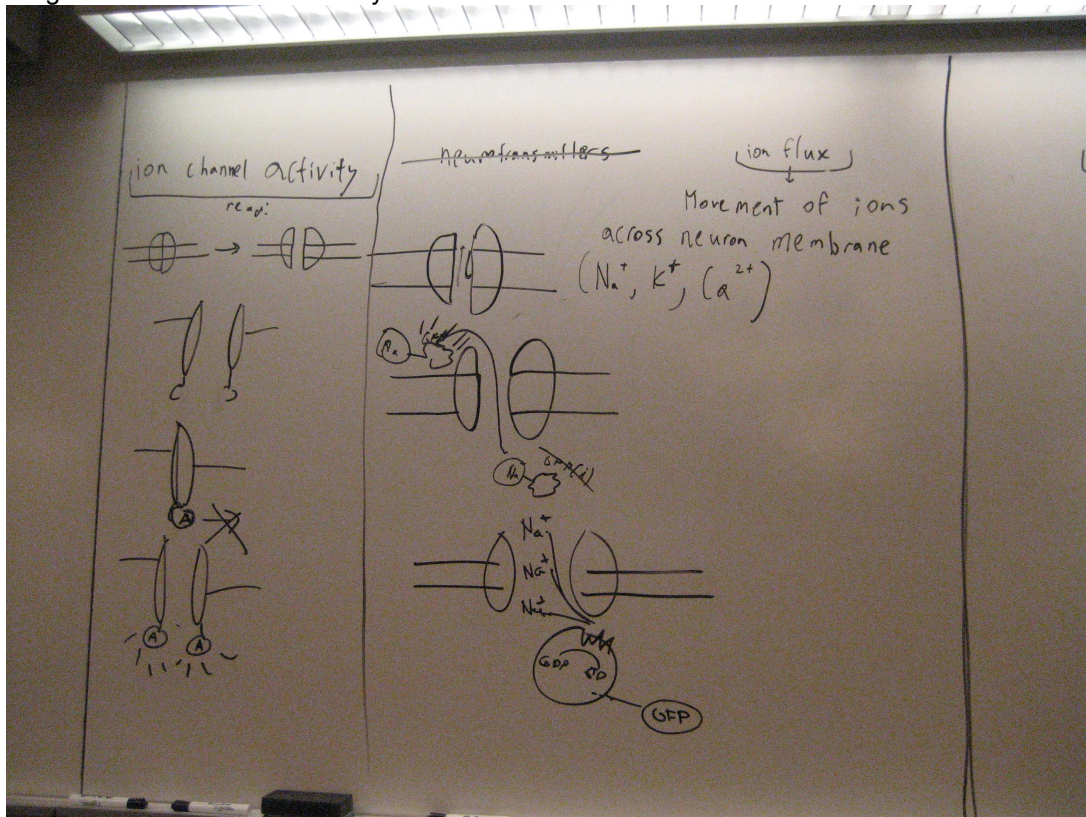 ion channel activity
neurotransmitters
ion flux
Movement of ions
across neuron membrane
(Na⁺, K⁺, Ca²⁺)
Na
Na
A
Na⁺
Na⁺
Na⁺
A A
GDP
GFP